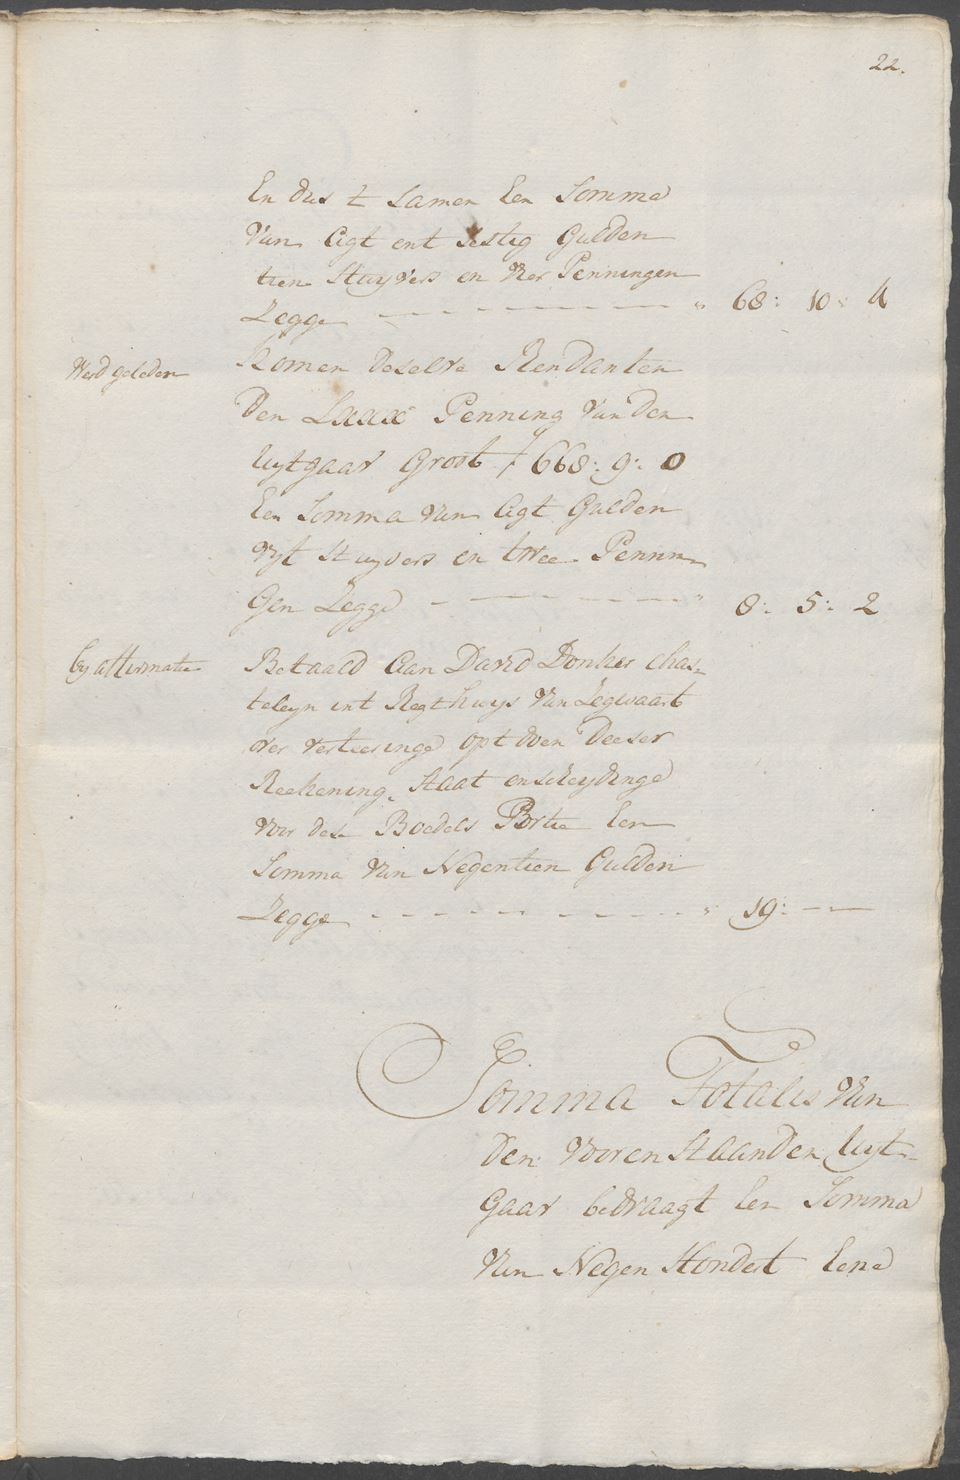 22.
En dus t Samen Een Somma
Van Agt ent sestig Gulden
tien Stuyvers en Vier Penningen
Zegge — — — — — " 68: 10: 4
Werd geleden
Komen deselve Rendanten
Den Lxxxe Penning Van Den
Uytgaar Groot ƒ 668: 9: 0
Een Somma Van Agt Gulden
Vyf Stuyvers en twee Pennin
Gen Zegge — — — — — " 8: 5: 2
by affirmatie
Betaald Aan David Donker Chas-
teleyn int Regthuys Van Zegwaart
over verteeringe opt doen Deeser
Reekening, Staat en scheydinge
voor dese Boedels Portie Een
Somma Van Negentien Gulden
Zegge — — — — — " 19: — —
Somma Totalis Van
Den Vooren Staanden Uyt-
Gaar bedraagt Een Somma
Van Negen Hondert Eene